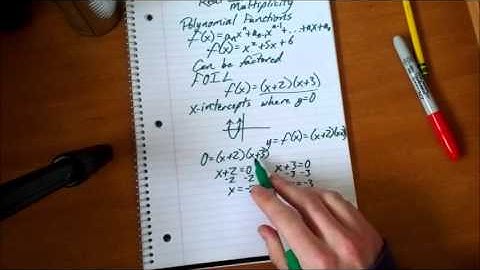 Multiplicity
Polynomial Functions
f(x)=aₙxⁿ+aₙ₋₁xⁿ⁻¹+...+a₁x+a₀
f(x)=x²+5x+6
Can be factored
FOIL
f(x)=(x+2)(x+3)
x-intercepts where y=0
y=f(x)=(x+2)(x+3)
0=(x+2)(x+3)
x+2=0 x+3=0
-2 -2 -3 -3
x=- =-3